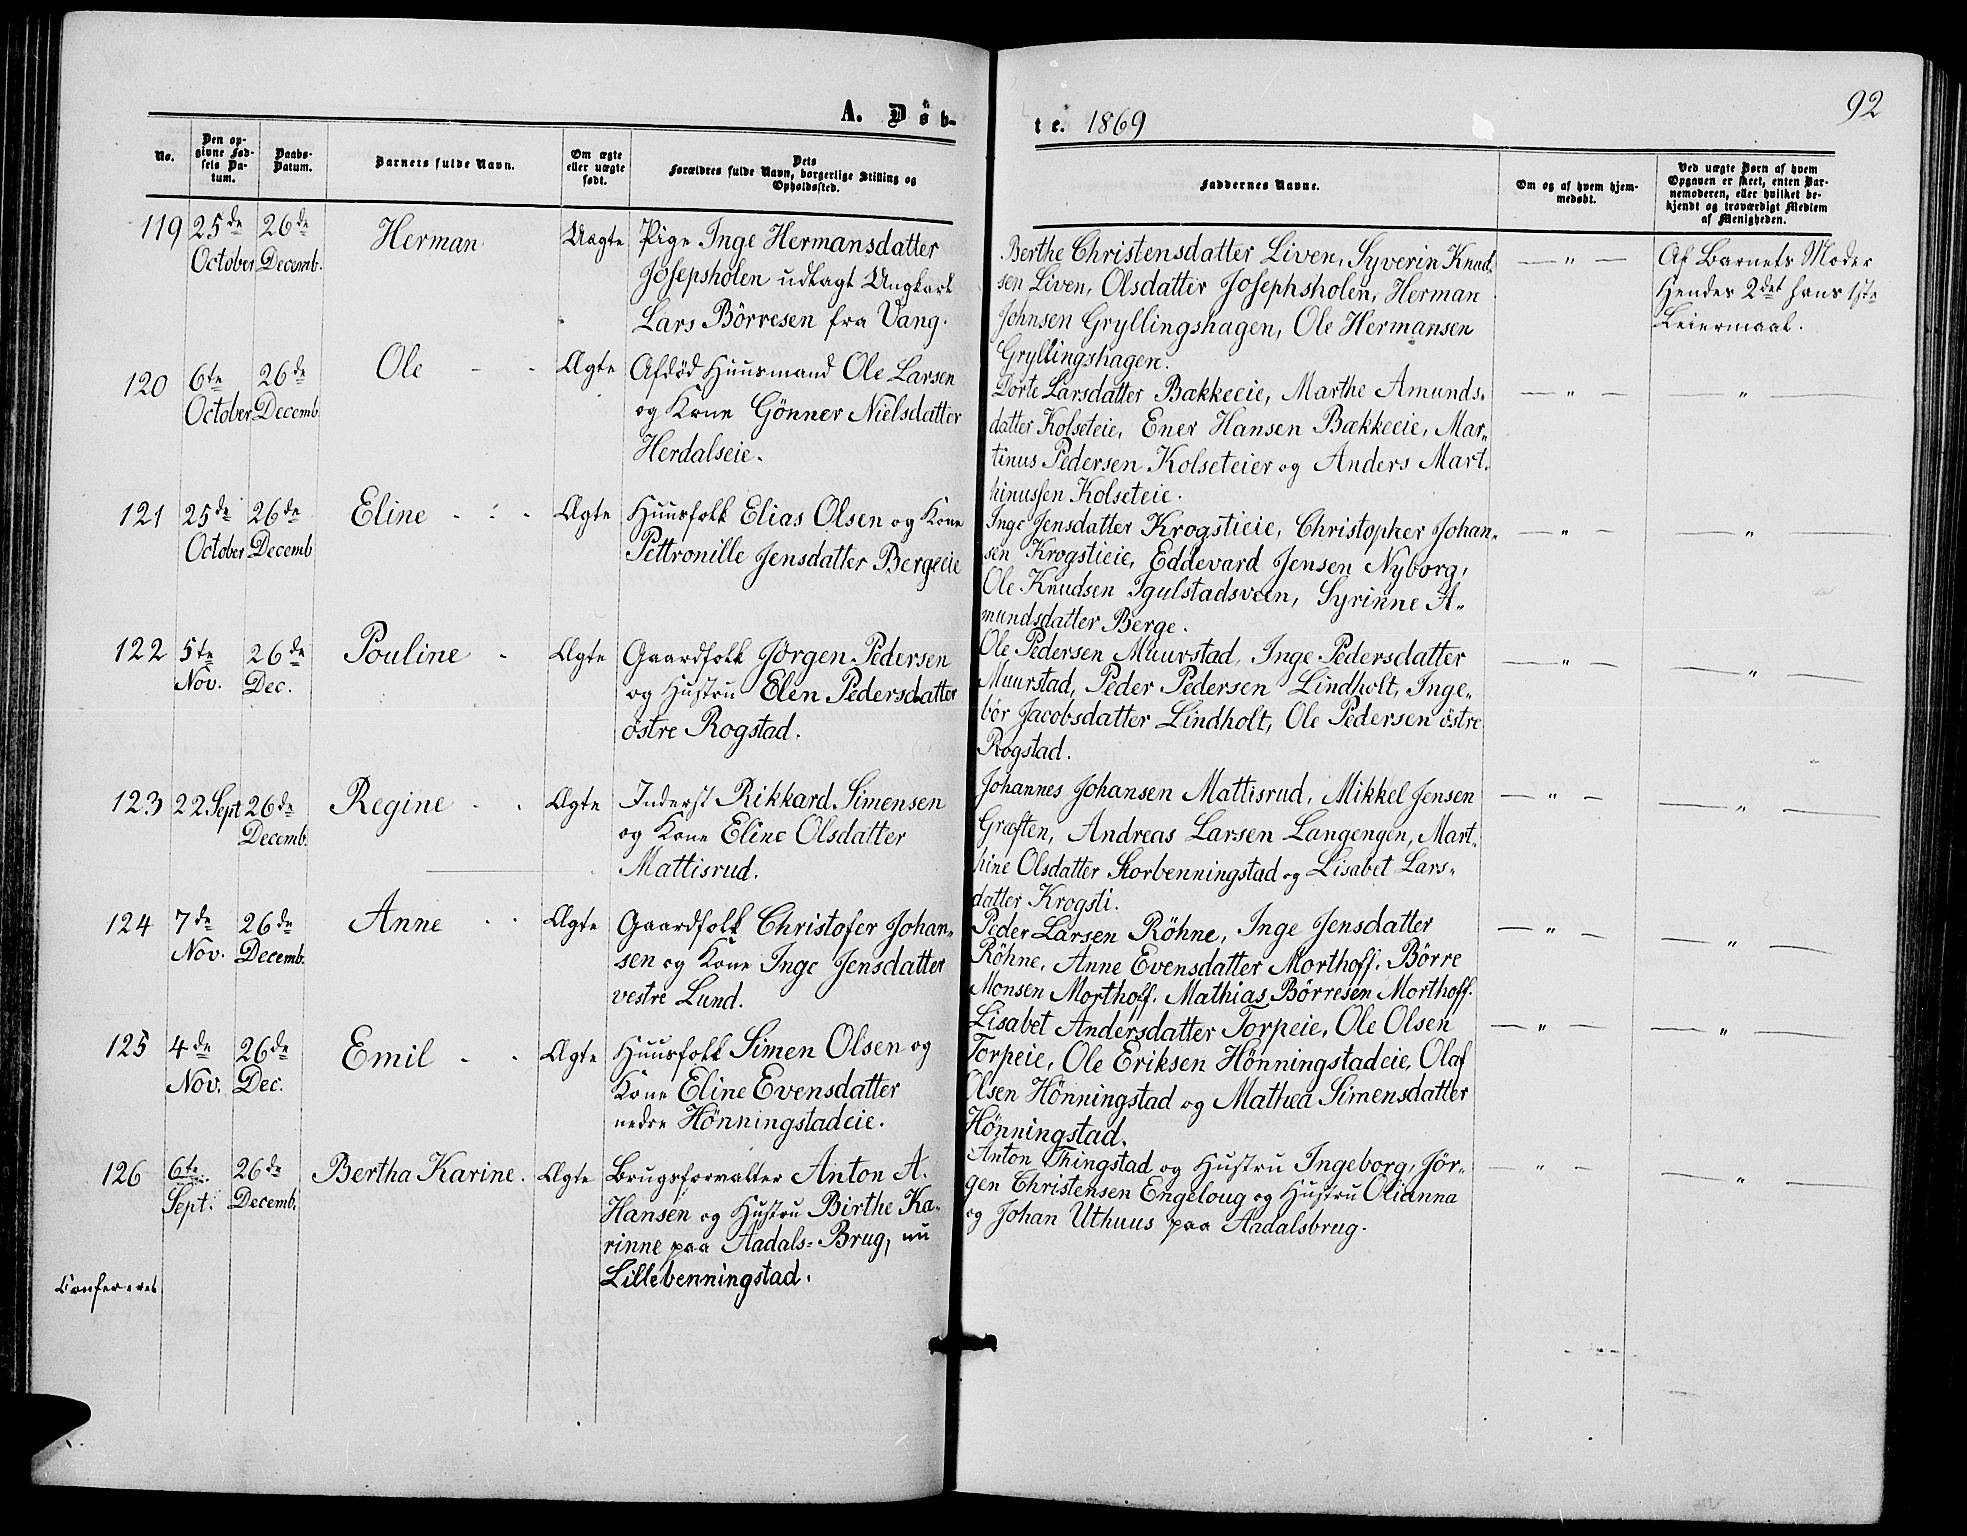 A. Døb-
No.
Den op-
givne Fød-
sels Da-
tum.
Daabs-
Datum.
Barnets fulde Navn.
Om ægte
eller uægte
født.
Dets
Forældres fulde Navn, borgerlige Stilling og
Opholdssted.
119 25de 26de Herman Uægte Pige Inge Hermansdatter
October Decemb. Josepsholen udlagt Ungkarl
Lars Börresen fra Vang.
120 6te 26de Ole - - Ægte Afdød Huusmand Ole Larsen
October Decemb. og Kone Gönner Nielsdatter
Herdalseie.
121 25de 26de Eline - - - Ægte Huusfolk Elias Olsen og Kone
October Decemb Pettronille Jensdatter Bergeeie
122 5te 26de Pouline - Ægte Gaardfolk Jörgen Pedersen
Nov. Dec. og Hustru Elen Pedersdatter
östre Rogstad.
123 22. Sept 26de Regine - - Ægte Inderst Rikkard Simensen
Decemb. og Kone Eline Olsdatter
Mattisrud.
124 7de 26de Anne - - Ægte Gaardfolk Christofer Johan-
Nov. Decemb. sen og Kone Inge Jensdatter
vestre Lund.
125 4de 26de Emil - - Ægte Huusfolk Simen Olsen og
Nov. Dec. Kone Eline Evensdatter
nedre Hönningstadeie.
126 6te 26de Bertha Karine. Ægte Brugsforvalter Anton A.
Sept. Decemb. Hansen og Hustru Birthe Ka-
rinne paa Aadals-Brug, nu
Lillebenningstad.
Confereres
te. 1869
92
Faddernes Navne.
Om og af hvem hjem-
medøbt.
Ved uægte Børn af hvem
Opgaven er skeet, enten Bar-
nemoderen, eller hvilket be-
kjendt og troværdigt Medlem
af Menigheden.
Berthe Christensdatter Liven, Syverin Knud- — " — Af Barnets Moder
sen Liven, Olsdatter Josephsholen, Herman Hendes 2det hans 1ste
Johnsen Gryllingshagen, Ole Hermansen Leiermaal.
Gryllingshagen.
Dorte Larsdatter Bækkeeie, Marthe Amunds- — " — — " —
datter Kolseteie, Ener Hansen Bækkeeie, Mar-
tinus Pedersen Kolseteier og Anders Mart-
hinussen Kolseteie.
Inge Jensdatter Krogstieie, Christopher Johan- — " — — " —
sen Krogstieie, Eddevard Jensen Nyborg,
Ole Knudsen Igulstadsveen, Syrinne A-
mundsdatter Berge.
Ole Pedersen Muurstad, Inge Pedersdatter — " — — " —
Muurstad, Peder Pedersen Lindholt, Inge-
bör Jacobsdatter Lindholt, Ole Pedersen östre
Rogstad.
Johannes Johansen Mattisrud, Mikkel Jensen — " — — " —
Græften, Andreas Larsen Langengen, Mart-
hine Olsdatter Storbenningstad og Lisabet Lars-
datter Krogsti.
Peder Larsen Röhne, Inge Jensdatter — " — — " —
Röhne, Anne Evensdatter Morthoff. Börre
Monsen Morthoff. Mathias Börresen Morthoff.
Lisabet Andersdatter Torpeie, Ole Olsen — " — — " —
Torpeie, Ole Eriksen Hönningstadeie, Olaf
Olsen Hönningstad og Mathea Simensdatter
Hönningstad.
Anton Thingstad og Hustru Ingeborg, Jör- — " — — " —
gen Christensen Engeloug og Hustru Olianna
og Johan Uthuus paa Aadalsbrug.